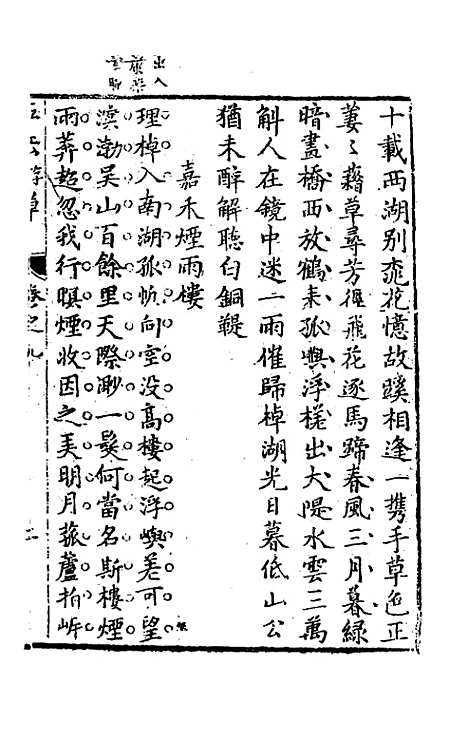 十載西湖別桃花憶故蹊相逢一携手草色正
萋〻藉草尋芳徑飛花逐馬蹄春風三月暮綠
暗畫橋西放鶴未孤興浮槎出大隄水雲三萬
斛人在鏡中迷一雨催歸棹湖光日暮低山公
猶未醉解聽白銅鞮
嘉禾煙雨樓
理棹入南湖孤帆向空没高樓起浮嶼差可望
溟渤吴山百餘里天際渺一髮何當名斯樓煙
雨莽超忽我行暝煙收因之美明月菰蘆拍岸
卷之九
出入